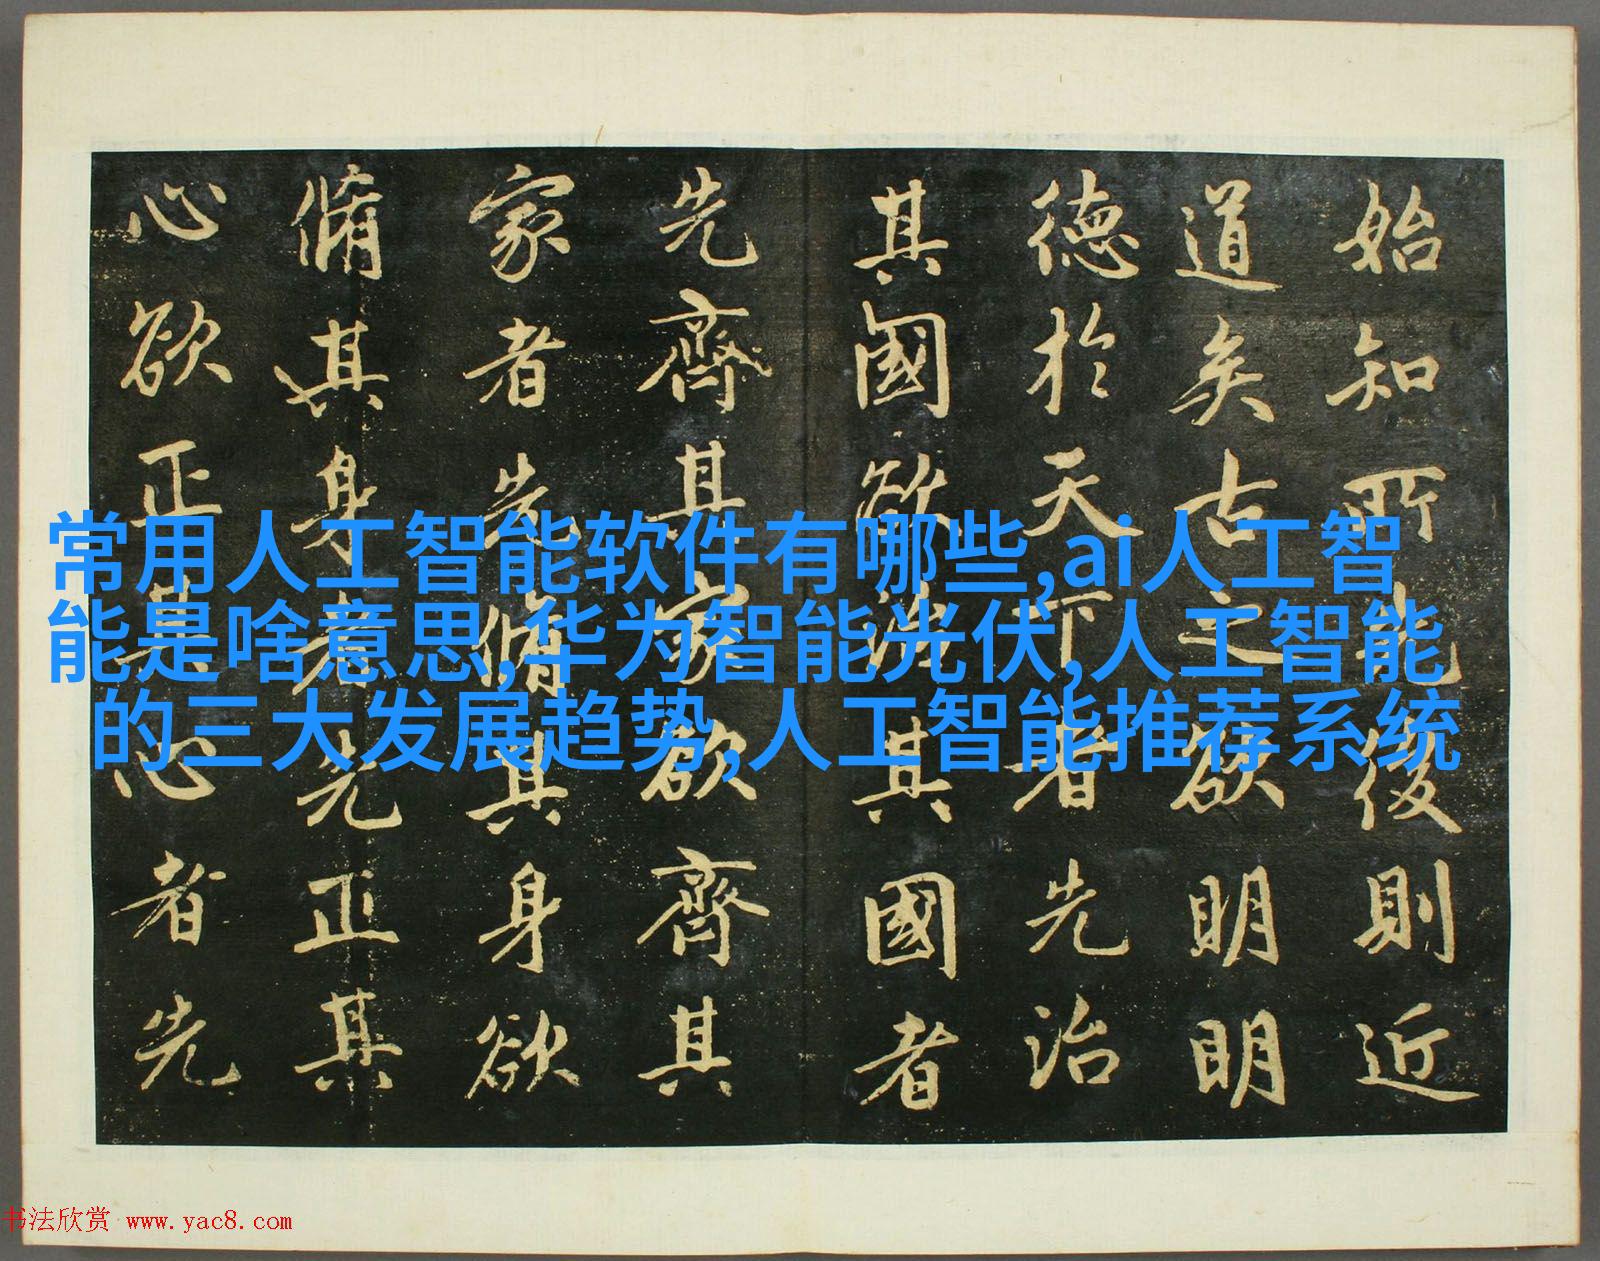 始知所先後則近
道矣古之欲明明
德於天下者先治
其國欲治其國者
先齊其家欲齊其
家者先脩其身欲
脩其身者先正其
心欲正其心者先
常用人工智能软件有哪些,ai人工智
能是啥意思,华为智能光伏,人工智能
的三大发展趋势,人工智能推荐系统
书法欣赏 www.yac8.com